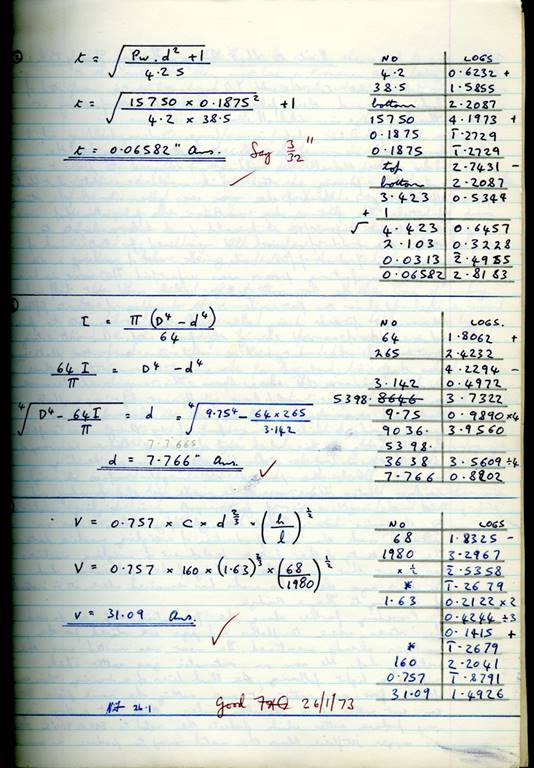 t = √(Pw. d² + 1 / 4.2 S)
t = √(15750 × 0.1875² / 4.2 × 38.5) + 1
t = 0.06582" Ans. Say 3/32"
NO LOGS
4.2 0.6232 +
38.5 1.5855
bottom 2.2087
15750 4.1973 +
0.1875 1̄.2729
0.1875 1̄.2729
top 2.7431 -
bottom 2.2087
3.423 0.5344
+ 1
√ 4.423 0.6457
2.103 0.3228
0.0313 2̄.4955
0.06582 2.8183
I = π (D⁴ - d⁴) / 64
64 I / π = D⁴ - d⁴
⁴√(D⁴ - 64I / π) = d = ⁴√(9.75⁴ - 64 × 265 / 3.142)
7.7665
d = 7.766" Ans.
NO LOGS.
64 1.8062 +
265 2.4232
4.2294 -
3.142 0.4972
5398. 8646 3.7322
9.75 0.9890 ×4
9036. 3.9560
5398.
3638 3.5609 ÷4
7.766 0.8902
V = 0.757 × C × d^2/3 × (h / l)^1/2
V = 0.757 × 160 × (1.63)^2/3 × (68 / 1980)^1/2
V = 31.09 Ans.
NO LOGS
68 1.8325 -
1980 3.2967
× ½ 2̄.5358
* 1̄.2679
1.63 0.2122 ×2
0.4244 ÷3
0.1415 +
* 1̄.2679
160 2.2041
0.757 1̄.8791
31.09 1.4926
26.1 Good 26/1/73